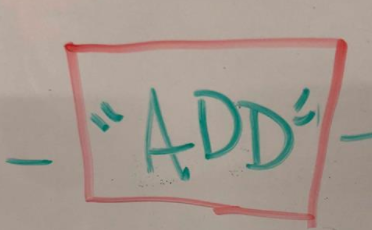 - "ADD" -